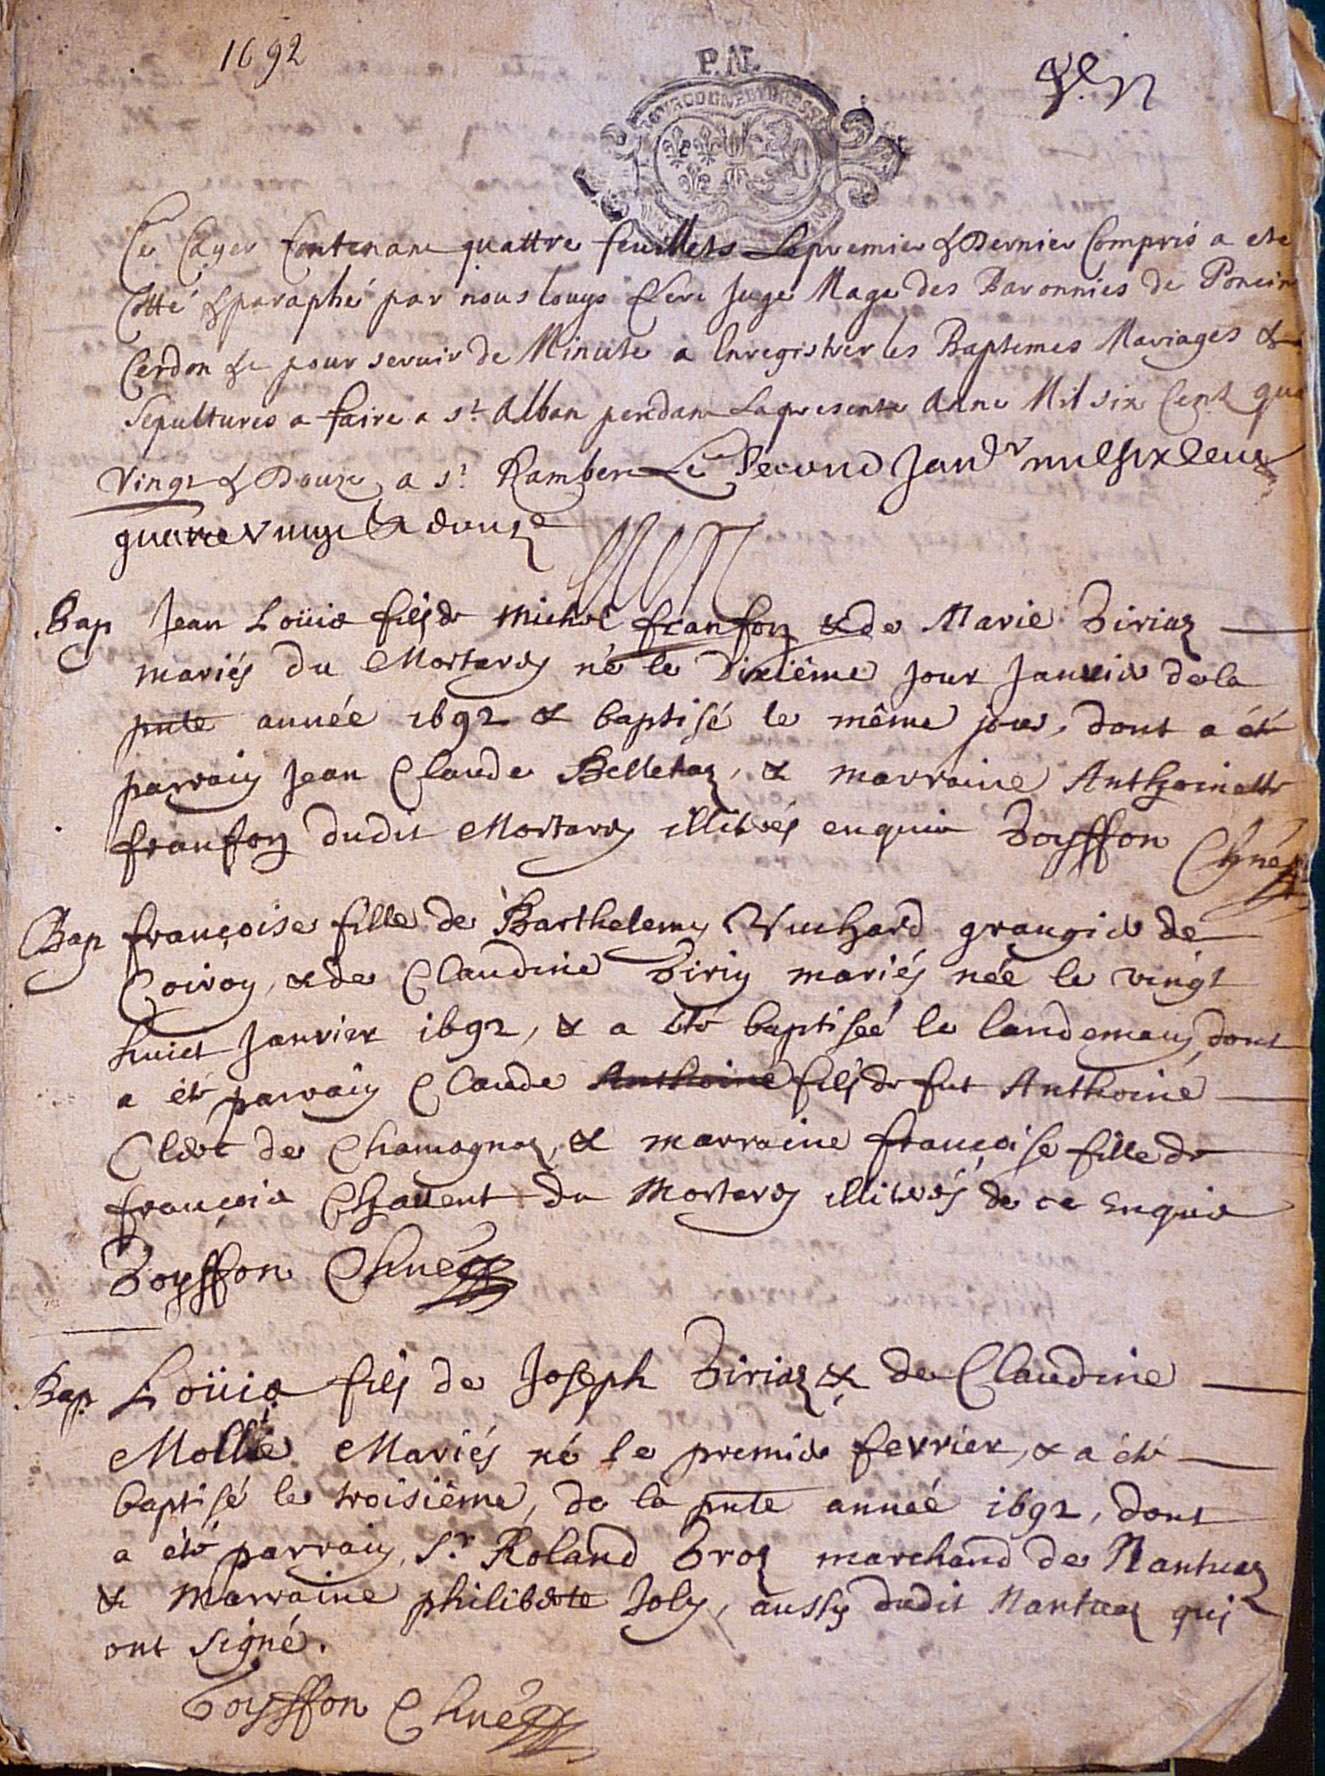 1692
P. N.
Ce Cayer Contenant quattre feuillets Le premier & Dernier Compris a ete
Cotté & paraphé par nous Louys Juge Mage des Baronnies de Poncin
Cerdon &c pour servir de Minute a Enregistrer les Baptemes Mariages &
Sepultures a faire a St Alban pendant La presente Anne Mil six Cent qua
vingt & Douze, a St Rambert Le Second Janvr mil six cent
quatre vingt & douze
Bap Jean Loüis fils de Michel franson & de Marie Biriaz
mariés du Mortarey né le Dixiême jour Janvier de la
pnte année 1692 & baptisé le même jour, dont a été
parrain Jean Claude Belletaz, & marraine Anthoinette
franson dudit Mortarey illitérés enquis Boysson Curé
Bap françoise fille de Barthelemy Vuchard granger de
Coiron, & de Claudine Biriy mariés née le vingt
huict Janvier 1692, & a été baptisée le landemain, dont
a été parrain Claude Anthoine fils de fut Anthoine
Clerc de Chamagnaz, & marraine françoise fille de
françois Chavent du Mortarey illitérés de ce Enquis
Boysson Curé
Bap Loüis fils de Joseph Biriaz & de Claudine
Mollie Mariés né le premier fevrier, & a été
baptisé le troisiême, de la pnte année 1692, dont
a été parrain, Sr Roland Broz marchand de Nantuaz
& Marraine philiberte Joly, aussy dudit Nantuaz qui
ont signé.
Boysson Curé